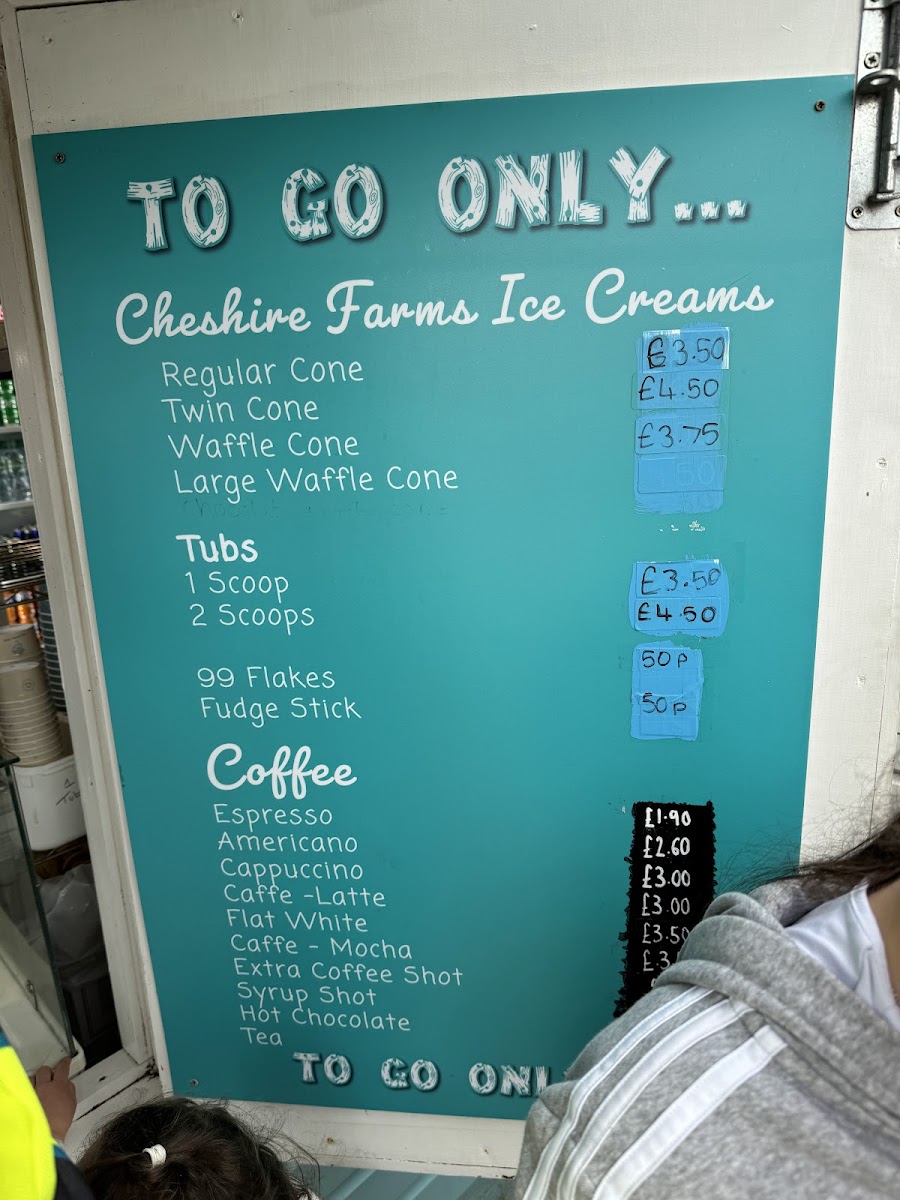 TO GO ONLY...
Cheshire Farms Ice Creams
Regular Cone £3.50
Twin Cone £4.50
Waffle Cone £3.75
Large Waffle Cone
Tubs
1 Scoop £3.50
2 Scoops £4.50
99 Flakes 50p
Fudge Stick 50p
Coffee
Espresso £1.90
Americano £2.60
Cappuccino £3.00
Caffe -Latte £3.00
Flat White £3.50
Caffe - Mocha
Extra Coffee Shot
Syrup Shot
Hot Chocolate
Tea
TO GO ONL